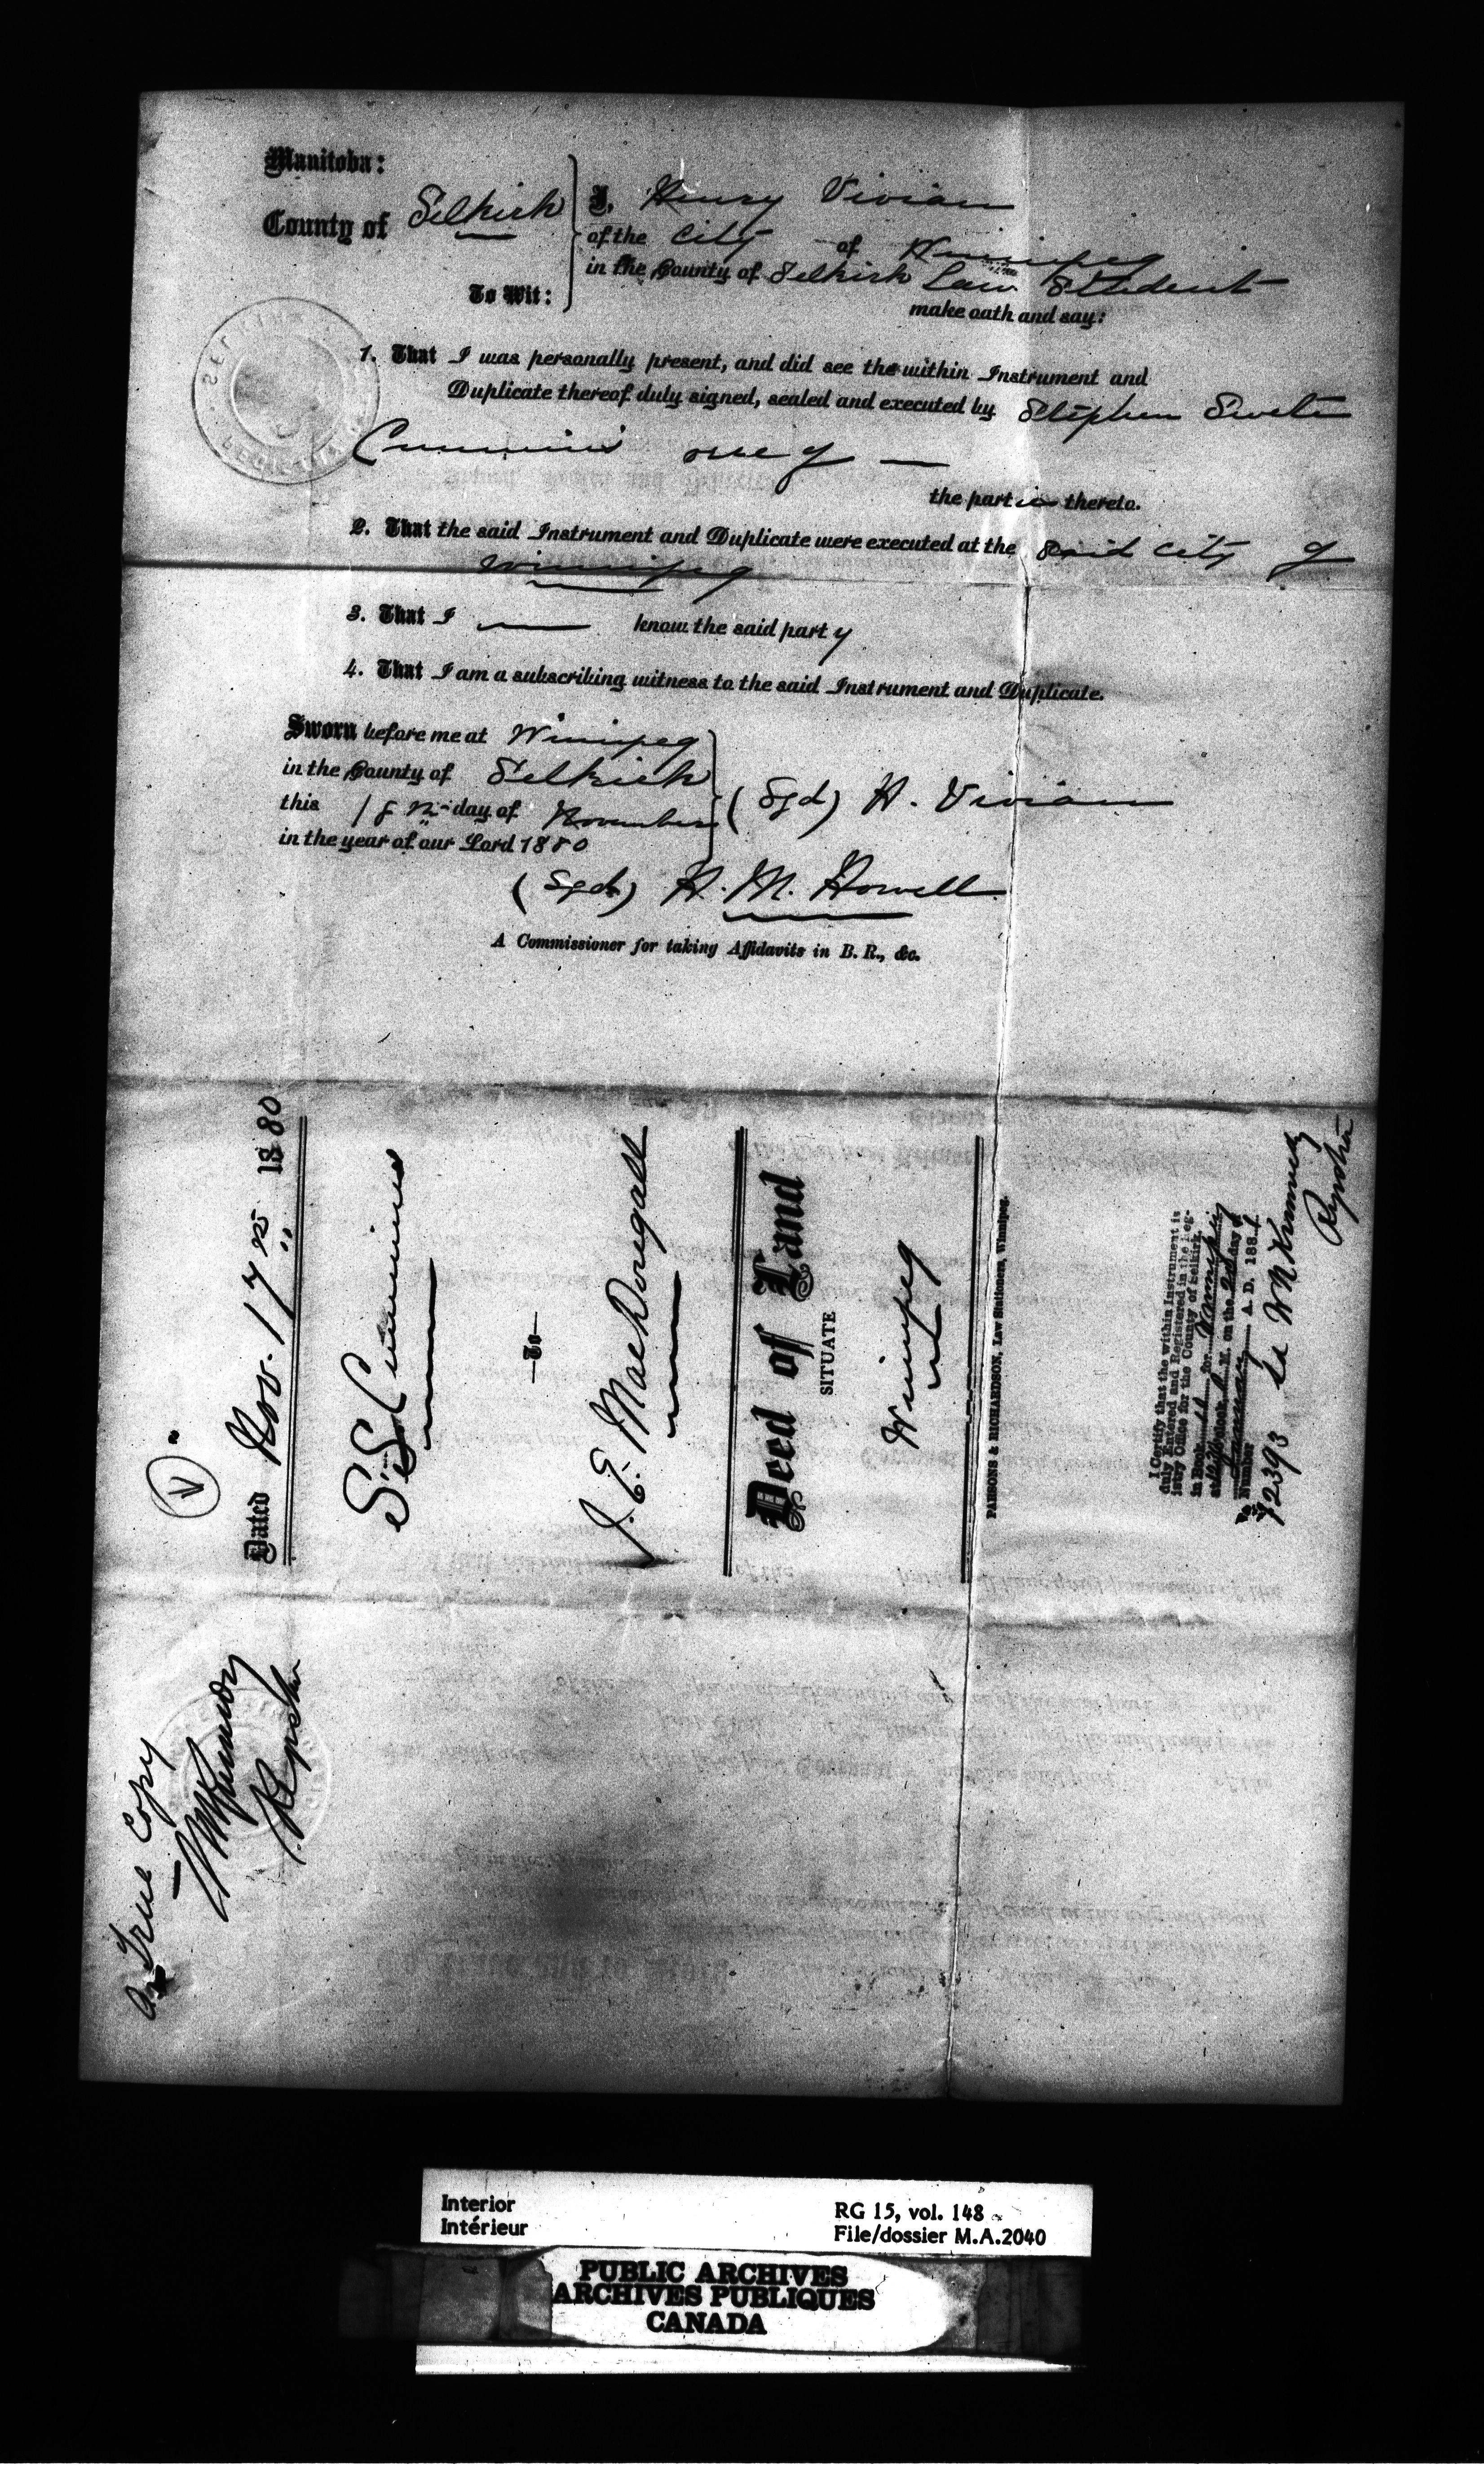 Manitoba:
County of Selkirk
To Wit:
I, Henry Vivian
of the City of Winnipeg
in the County of Selkirk Law Student
make oath and say:
1. That I was personally present, and did see the within Instrument and
Duplicate thereof duly signed, sealed and executed by Stephen
Cummins one of —
the parties thereto.
2. That the said Instrument and Duplicate were executed at the said City of
Winnipeg
3. That I — know the said party
4. That I am a subscribing witness to the said Instrument and Duplicate.
Sworn before me at Winnipeg
in the County of Selkirk
this 18th day of November
in the year of our Lord 1880
(Sgd) H. Vivian
(Sgd) H. M. Howell
A Commissioner for taking Affidavits in B. R., &c.
Dated Nov. 17th 1880
S. S. Cummins
—To—
J. E. MacDougall
Deed of Land
SITUATE
Winnipeg
PARSONS & RICHARDSON, Law Stationers, Winnipeg.
I Certify that the within Instrument is
duly Entered and Registered in the Reg-
istry Office for the County of Selkirk,
in Book for Winnipeg
at o'clock M. on the 2nd day of
January A. D. 1881
Number
72393
A True Copy
Interior
Intérieur
RG 15, vol. 148
File/dossier M.A.2040
PUBLIC ARCHIVES
ARCHIVES PUBLIQUES
CANADA